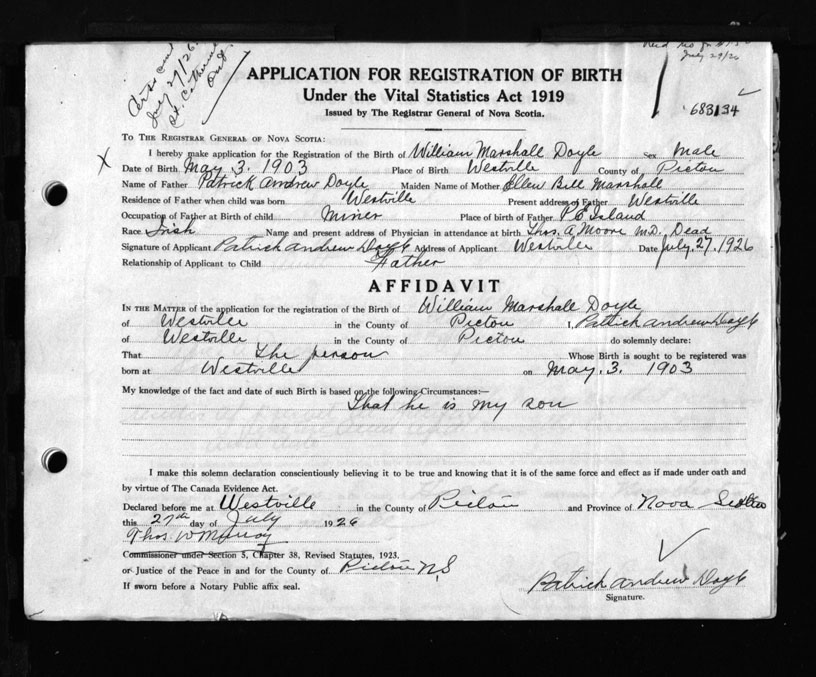 Cert sent
July 29/26.
St. Catharines
Ont.
July 29/26
683134
APPLICATION FOR REGISTRATION OF BIRTH
Under the Vital Statistics Act 1919
Issued by The Registrar General of Nova Scotia.
TO THE REGISTRAR GENERAL OF NOVA SCOTIA:
X I hereby make application for the Registration of the Birth of William Marshall Doyle Sex male
Date of Birth May. 3. 1903 Place of Birth Westville County of Pictou
Name of Father Patrick Andrew Doyle Maiden Name of Mother Ellen Bell Marshall
Residence of Father when child was born Westville Present address of Father Westville
Occupation of Father at Birth of child Miner Place of birth of Father P.E Island
Race Irish Name and present address of Physician in attendance at birth Thos. A Moore M.D. Dead
Signature of Applicant Patrick Andrew Doyle Address of Applicant Westville Date July. 27. 1926
Relationship of Applicant to Child Father
AFFIDAVIT
IN THE MATTER of the application for the registration of the Birth of William Marshall Doyle
of Westville in the County of Pictou I, Patrick Andrew Doyle
of Westville in the County of Pictou do solemnly declare:
That The person Whose Birth is sought to be registered was
born at Westville on May. 3. 1903
My knowledge of the fact and date of such Birth is based on the following Circumstances:—
That he is my son
I make this solemn declaration conscientiously believing it to be true and knowing that it is of the same force and effect as if made under oath and
by virtue of The Canada Evidence Act.
Declared before me at Westville in the County of Pictou and Province of Nova Scotia
this 27th day of July 1926
Thos W Murray
Commissioner under Section 5, Chapter 38, Revised Statutes, 1923.
or Justice of the Peace in and for the County of Pictou N.S
If sworn before a Notary Public affix seal.
Patrick Andrew Doyle
Signature.